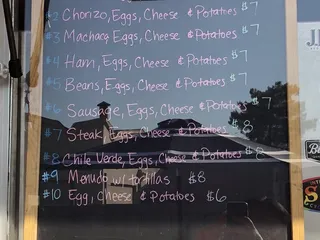 #2 Chorizo, Eggs, Cheese & Potatoes $7
#3 Machaca, Eggs, Cheese & Potatoes $7
#4 Ham, Eggs, Cheese & Potatoes $7
#5 Beans, Eggs, Cheese & Potatoes $7
#6 Sausage, Eggs, Cheese & Potatoes $7
#7 Steak, Eggs, Cheese & Potatoes $8
#8 Chile Verde, Eggs, Cheese & Potatoes $8
#9 Menudo w/ tortillas $8
#10 Egg, Cheese & Potatoes $6